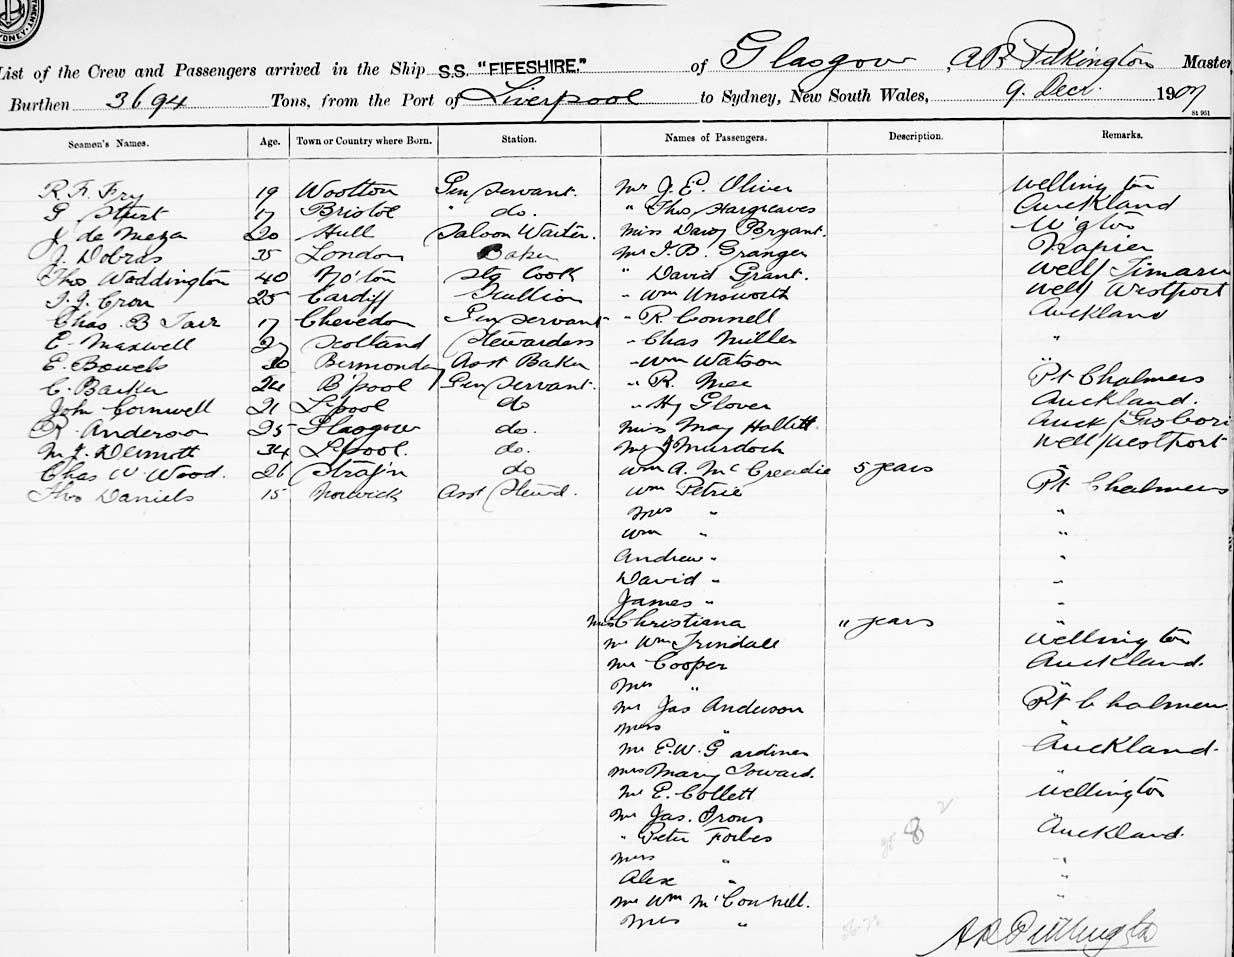 List of the Crew and Passengers arrived in the Ship S.S. "FIFESHIRE." of Glasgow, A R Pilkington Master
Burthen 3694 Tons, from the Port of Liverpool to Sydney, New South Wales, 9. Decr. 1907
St 951
Seamen's Names. Age. Town or Country where Born. Station. Names of Passengers. Description. Remarks.
R F Fry 19 Wootton Gen Servant. Mr J. E. Oliver Wellington
G Sturt 17 Bristol " do. " Thos Hargreaves Auckland
J de Meza 20 Hull Saloon Waiter. Miss Daisy Bryant. W'gton
J. Dobras 35 London Baker Mr J. B. Granger Napier
Thos Waddington 40 No'ton Stg Cook " David Grant. Well/ Timaru
J. J. Cron 25 Cardiff Scullion " Wm Unsworth Well/ Westport
Chas. B Tarr 17 Clevedon Gen Servant " R. Connell Auckland
E. Maxwell 27 Scotland Stewardess " Chas Miller "
E. Bowels 30 Bermondsey Asst Baker " Wm Watson "
C. Barker 24 B'pool Gen Servant. " R. Mee Pt Chalmers
John Cornwell 21 L'pool do " Hy Glover Auckland.
R. Anderson 25 Glasgow do. Miss May Hallett Auck/
M. J. Dermott 34 L'pool. do. Mr J Murdoch Well/Westport
Chas W. Wood. 26 do Wm A. McCreadie 5 years "
Thos Daniels 15 Norwick Asst Stewd. Wm Petrie Pt Chalmers
Mrs " "
Wm " "
Andrew " "
David " "
James " "
Miss Christiana 11 years "
Mr Wm Trindall Wellington
Mr Cooper Auckland.
Mrs " "
Mr Jas Anderson Pt Chalmers
Mrs " "
Mr E. W. Gardiner Auckland.
Mrs Mary Toward. "
Mr E. Collett Wellington
Mr Jas. Irons "
" Peter Forbes Auckland.
Mrs " "
Alex " "
Mr Wm McConnell. "
Mrs "
A R Pilkington